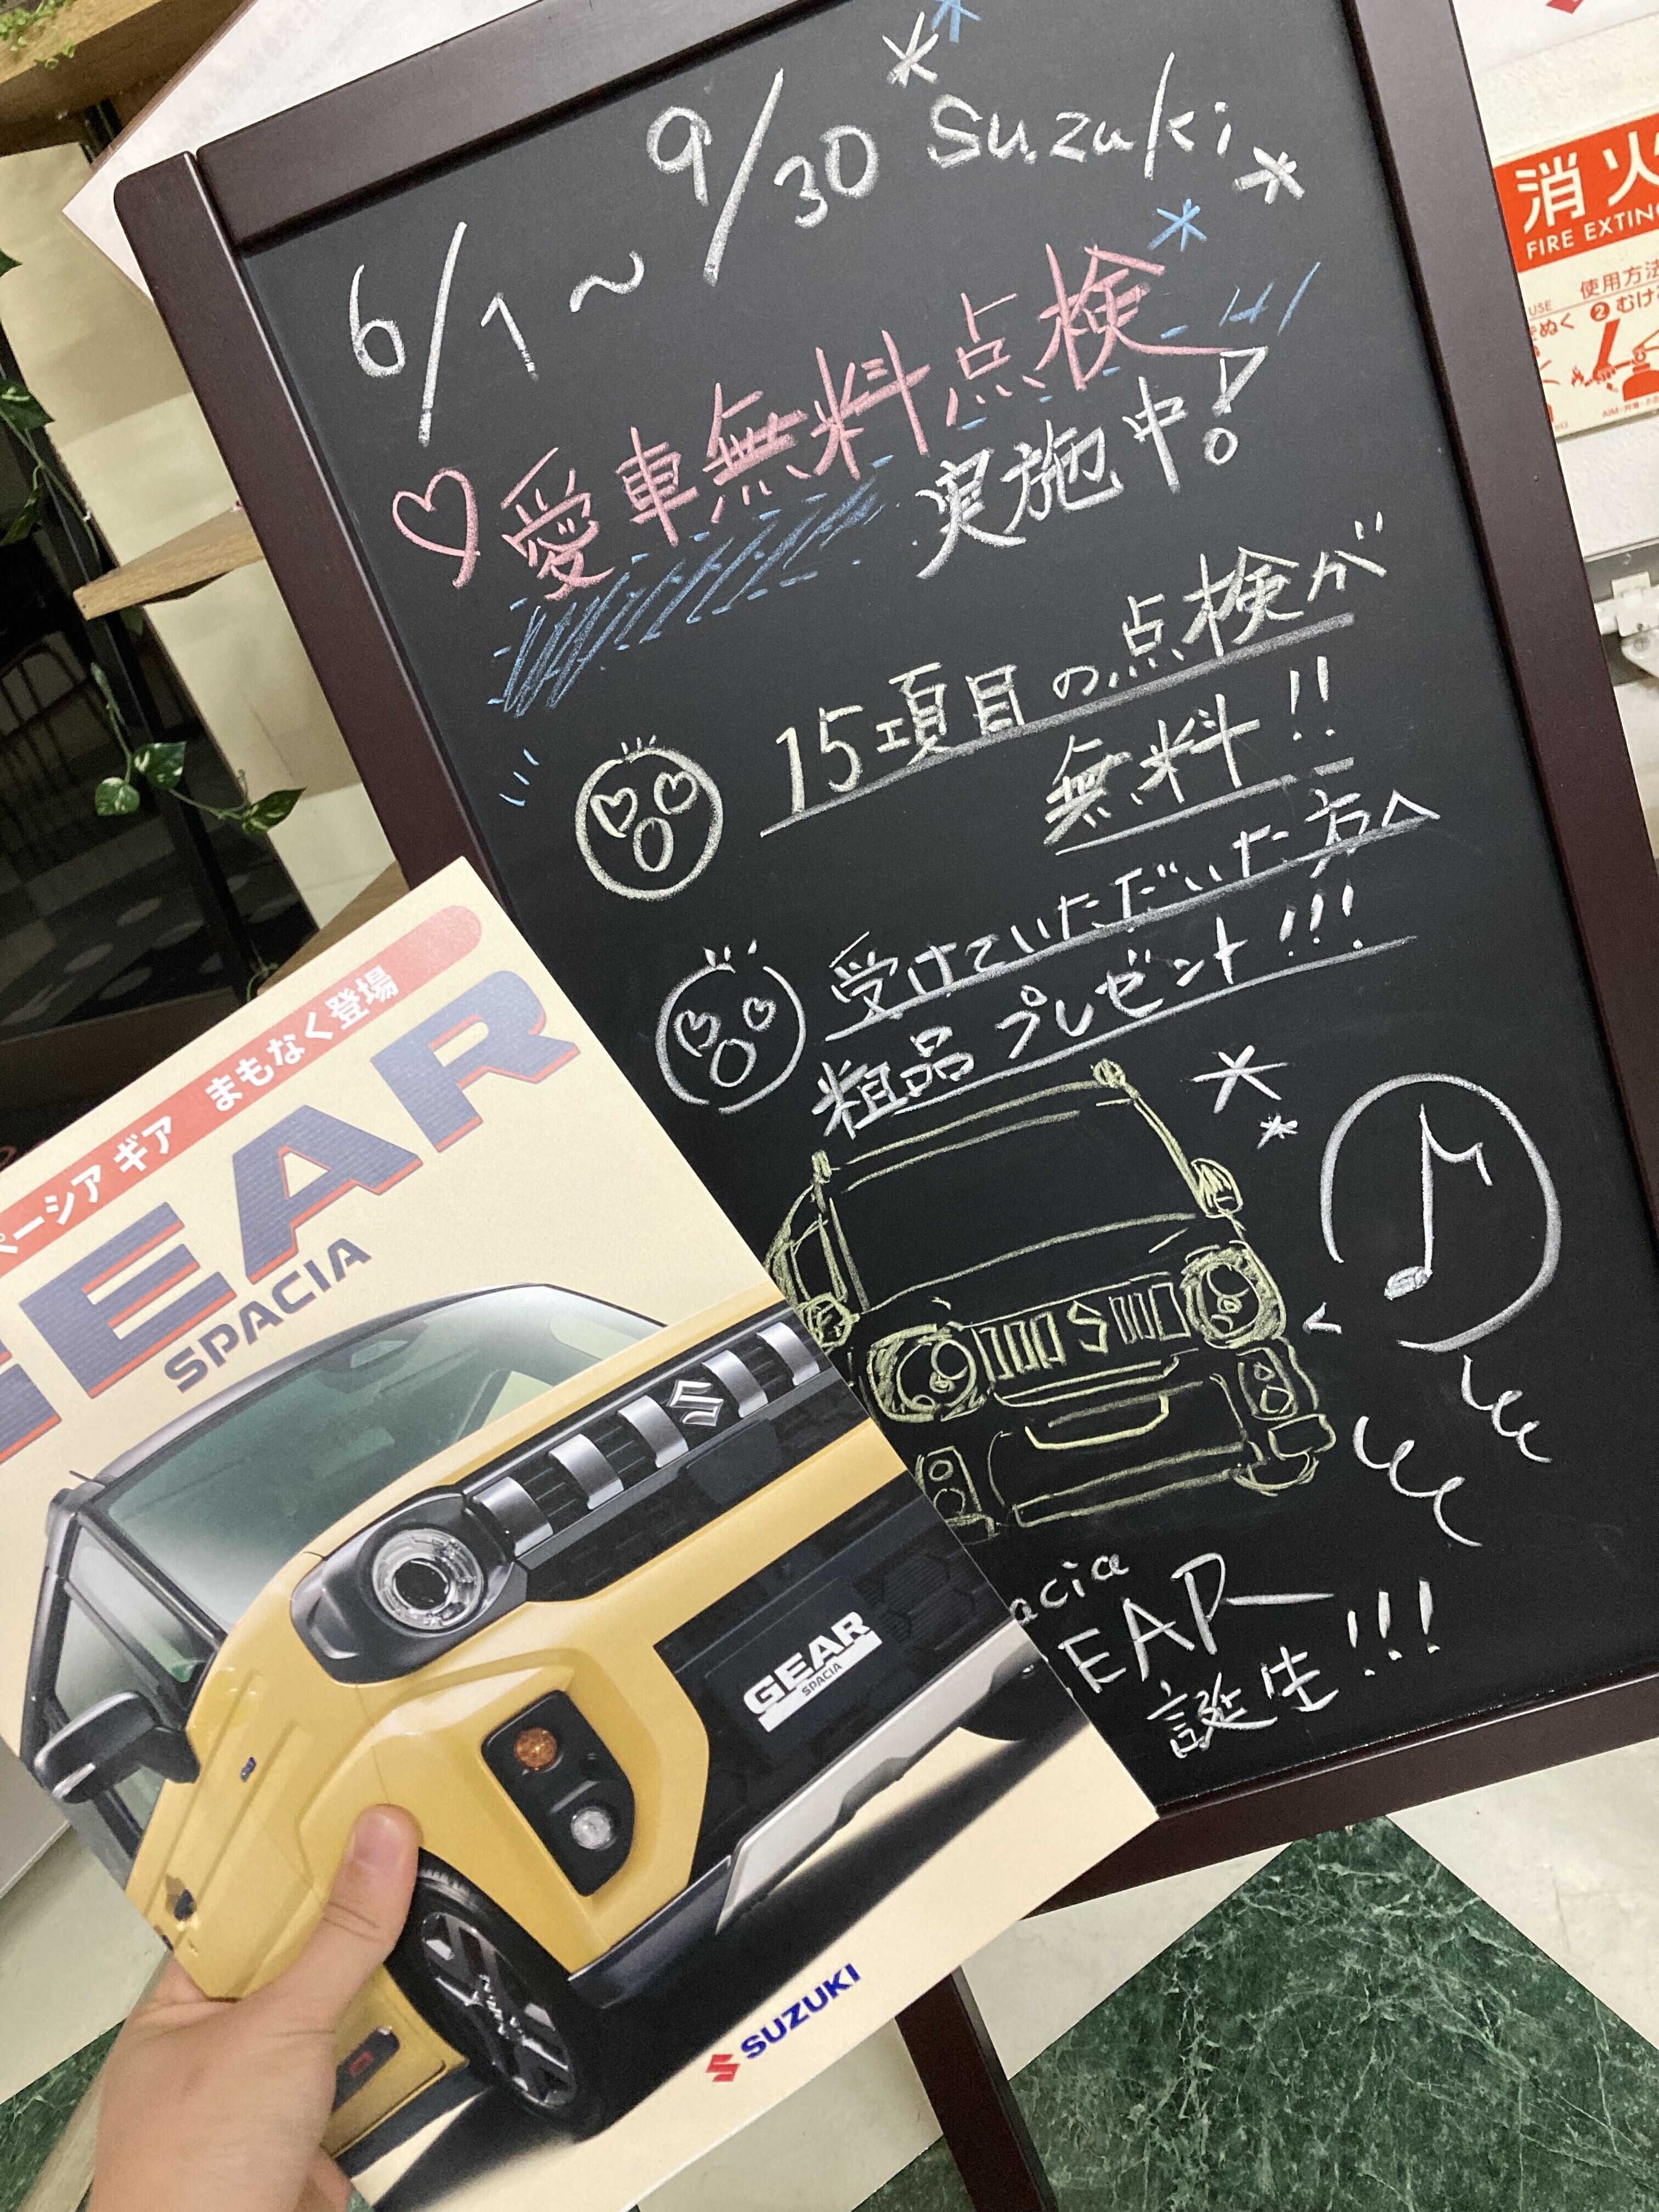 6/1～9/30 Suzuki
愛車無料点検
実施中!
15項目の点検が
無料!!
受けていただいた方へ
粗品プレゼント!!!
acia
EAR
誕生!!!
ペーシア ギア まもなく登場
GEAR
SPACIA
GEAR
SPACIA
SUZUKI
消火
FIRE EXTING
使用方法
USE
をぬく
② むける